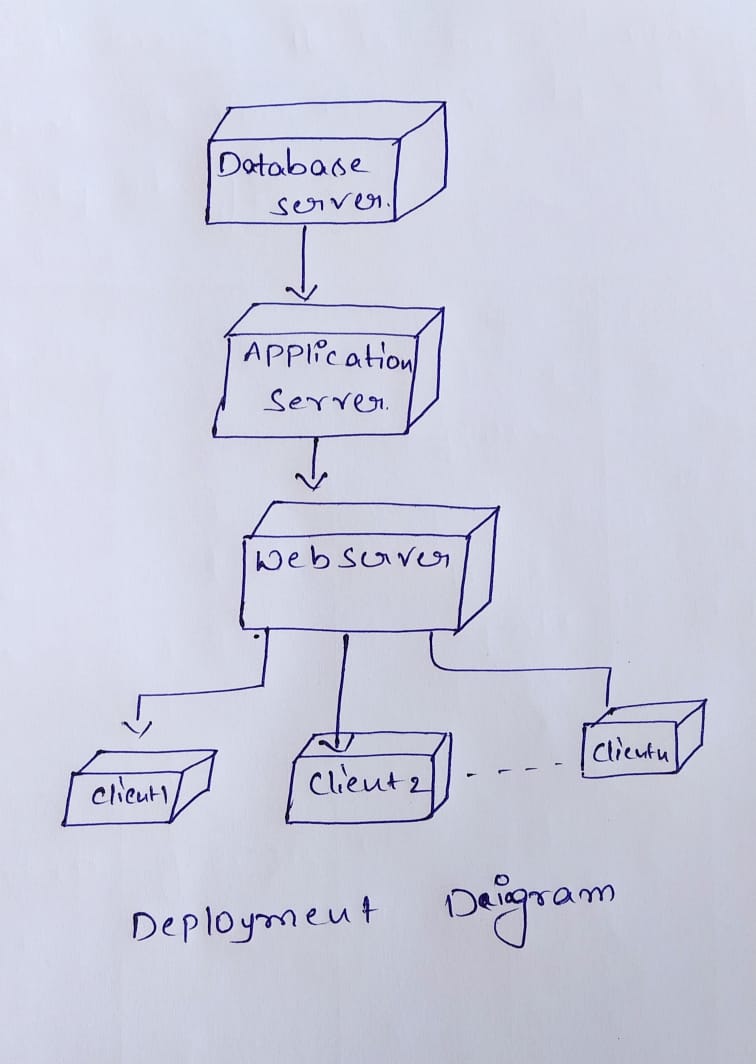 Database
server.
Application
Server.
Webserver
Client1
Client2
Clientn
Deployment Daigram